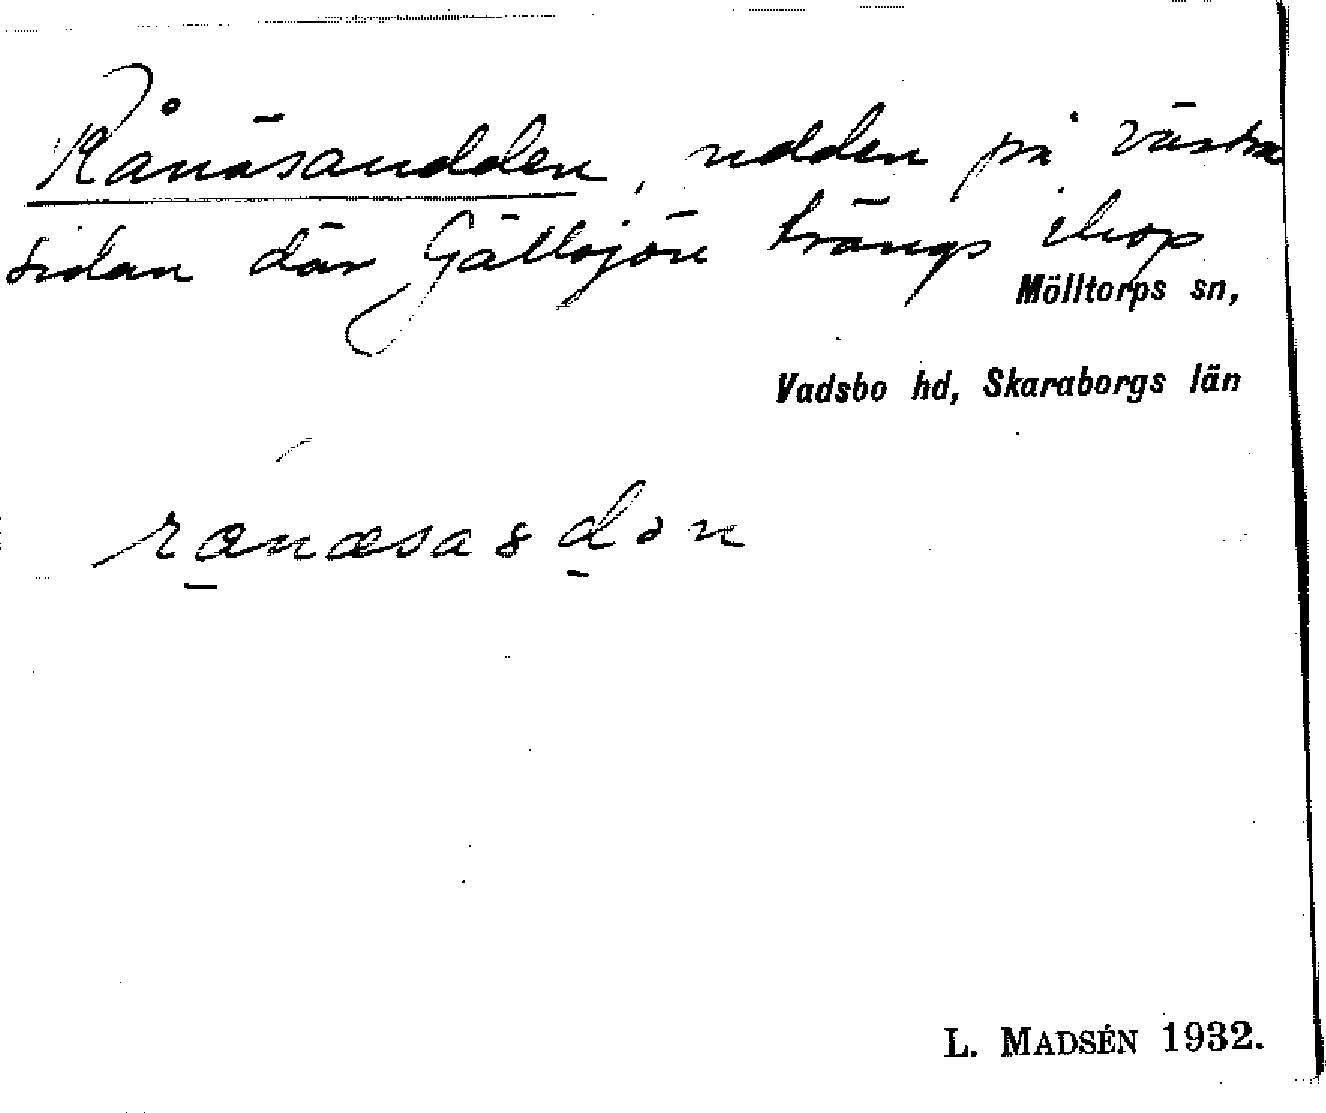 Rånäsaudden, udden på västra
sidan där Gällsjön trängs ihop
Mölltorps sn,
Vadsbo hd, Skaraborgs län
L. MADSÉN 1932.